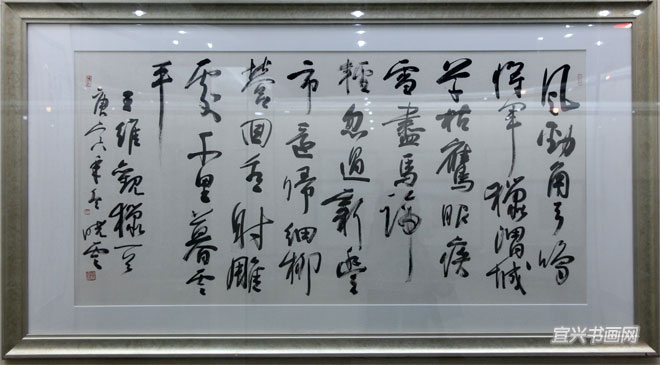 風勁角弓鳴
將軍獵渭城
草枯鷹眼疾
雪盡馬蹄
輕忽過新豐
市還歸細柳
營回看射雕
處千里暮雲
平
王維觀獵
庚寅年 曉雲
宜兴书画网